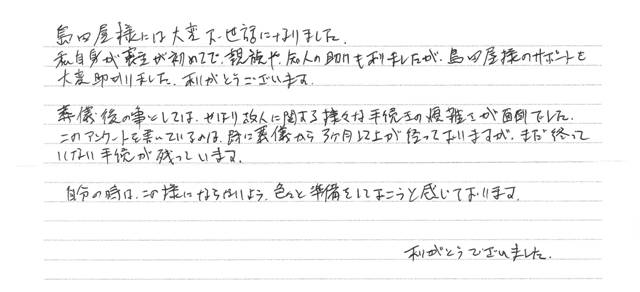 島田屋様には大変お世話になりました。
私自身が喪主が初めてで、親族や、知人の助けもありましたが、島田屋様のサポートも
大変助かりました。ありがとうございます。
葬儀後の事としては、やはり故人に関する様々な手続きの煩雑さが面倒でした。
このアンケートを書いているのは、既に葬儀から3ヶ月以上が経っておりますが、まだ終って
いない手続が残っています。
自分の時は、この様にならないよう、色々と準備をしておこうと感じております。
ありがとうございました。